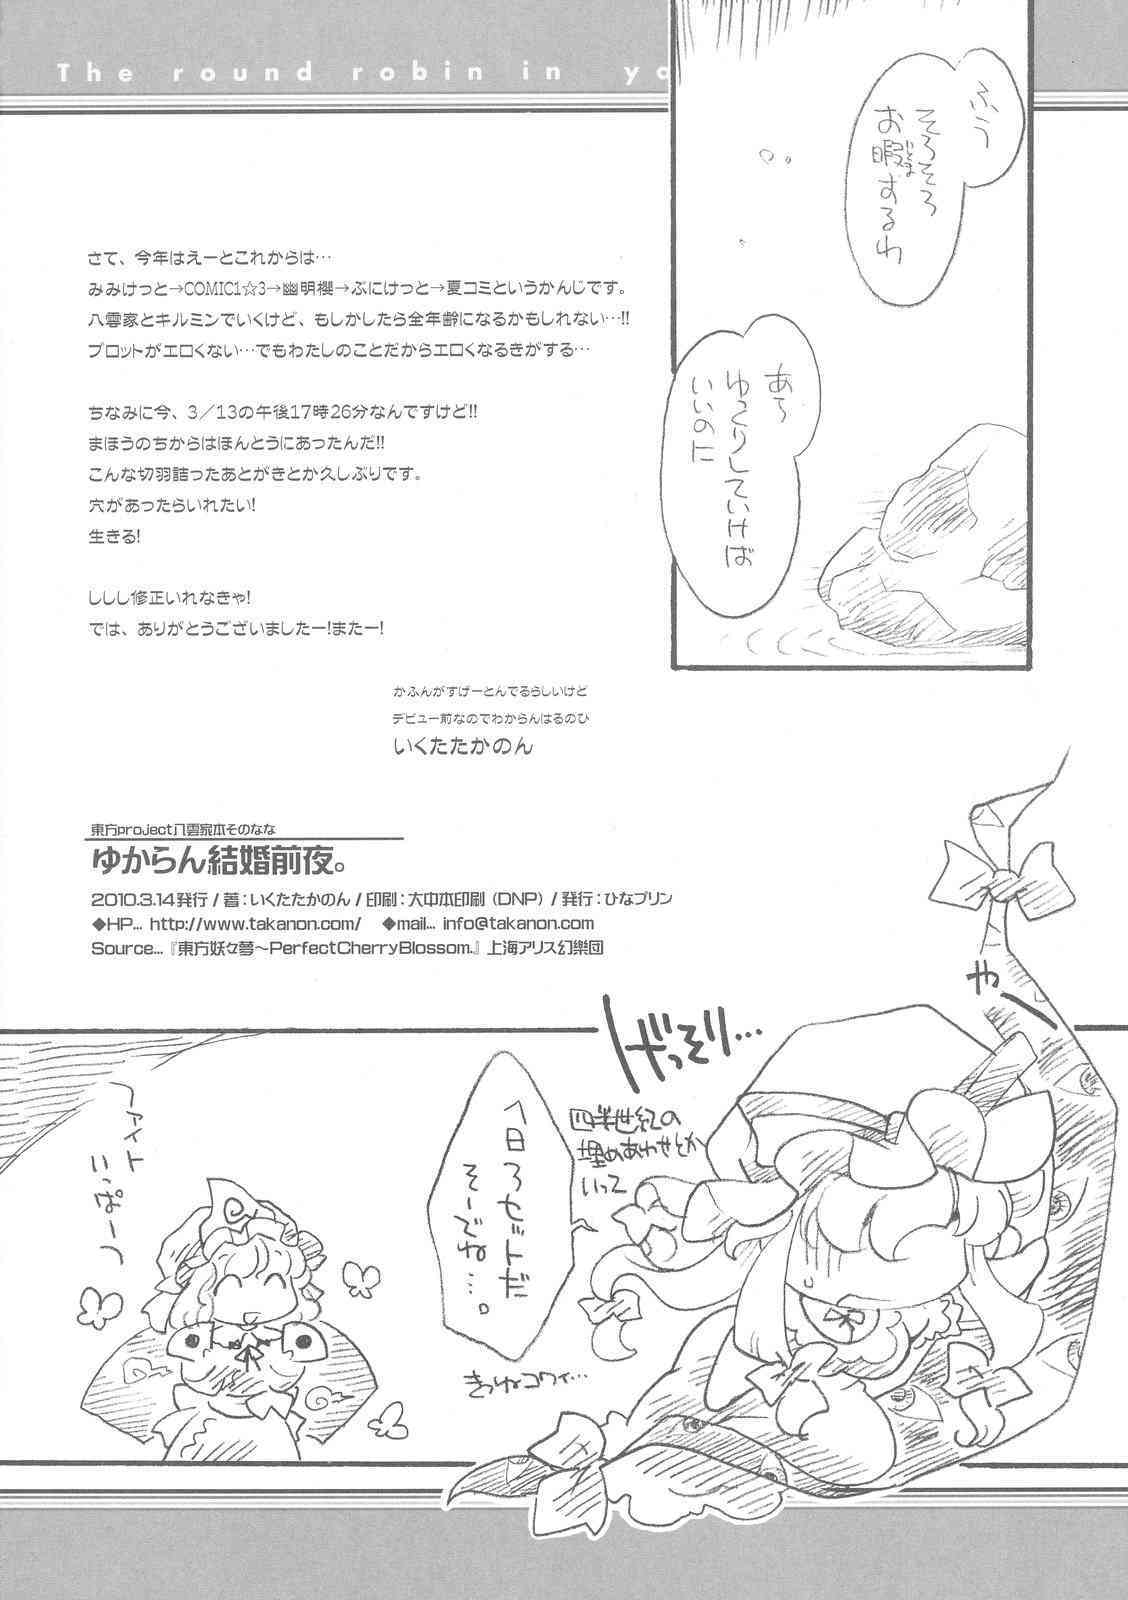 The round robin in ya
ふう
そろそろ
お暇するわ
いとま
あら
ゆっくりしていけば
いいのに
さて、今年はえーとこれからは…
みみけっと→COMIC1☆3→幽明櫻→ぷにけっと→夏コミというかんじです。
八雲家とキルミンでいくけど、もしかしたら全年齢になるかもしれない…!!
プロットがエロくない…でもわたしのことだからエロくなるきがする…
ちなみに今、3/13の午後17時26分なんですけど!!
まほうのちからはほんとうにあったんだ!!
こんな切羽詰ったあとがきとか久しぶりです。
穴があったらいれたい!
生きる!
ししし修正いれなきゃ!
では、ありがとうございましたー!またー!
かふんがすげーとんでるらしいけど
デビュー前なのでわからんはるのひ
いくたたかのん
東方project八雲家本そのなな
ゆからん結婚前夜。
2010.3.14発行 / 著：いくたたかのん / 印刷：大中本印刷（DNP）/ 発行：ひなプリン
◆HP... http://www.takanon.com/ ◆mail... info@takanon.com
Source...『東方妖々夢～PerfectCherryBlossom.』上海アリス幻樂団
げっそり…
四半世紀の
埋めあわせとか
いって
1日3セットだ
そーでね…。
きつねコワイ…
ファイト
いっぱーつ